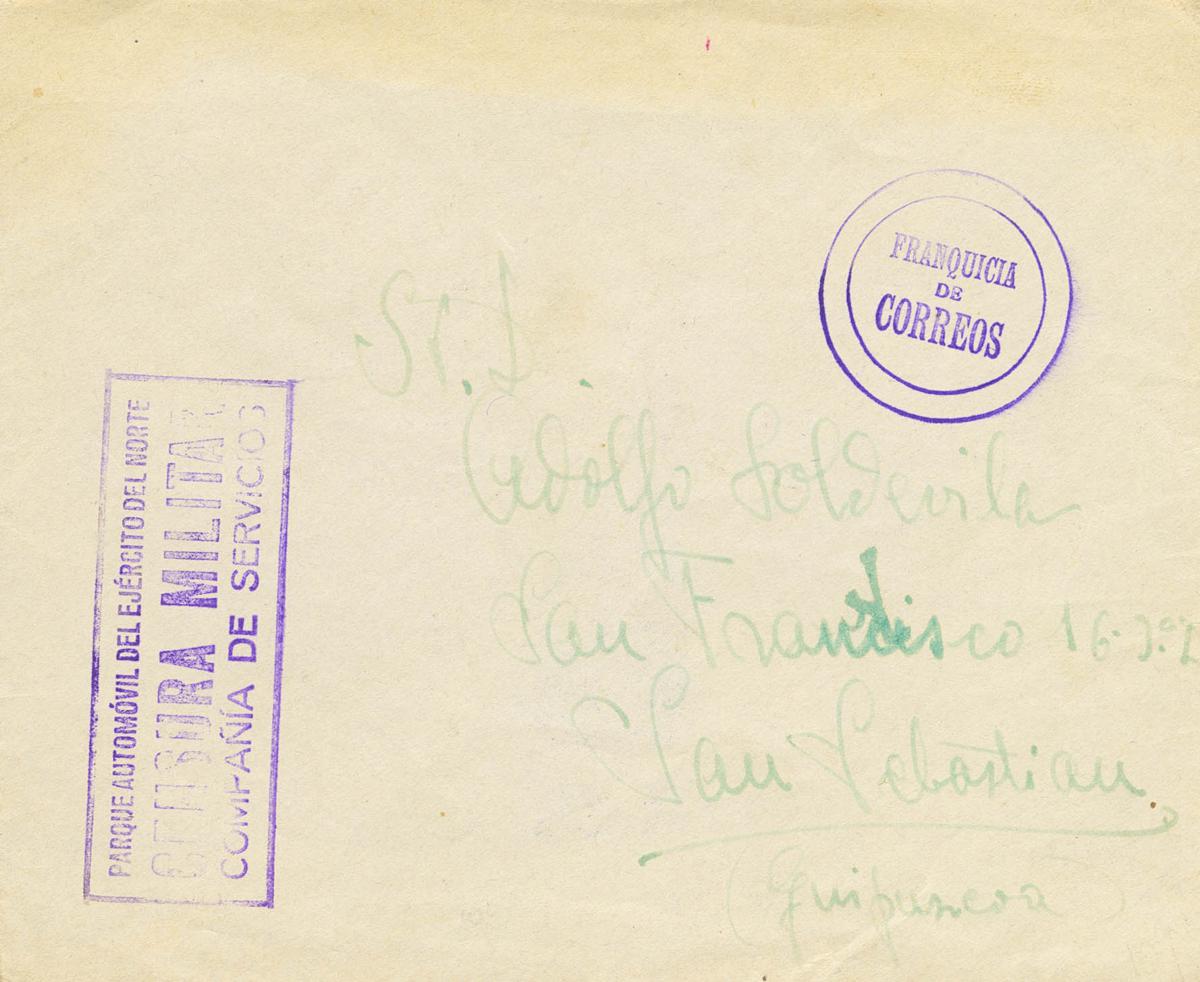 FRANQUICIA
DE
CORREOS
Sr. D.
Adolfo Soldevila
San Francisco 16-3º
San Sebastian
(Guipuzcoa)
PARQUE AUTOMÓVIL DEL EJÉRCITO DEL NORTE
CENSURA MILITAR
COMPAÑÍA DE SERVICIOS